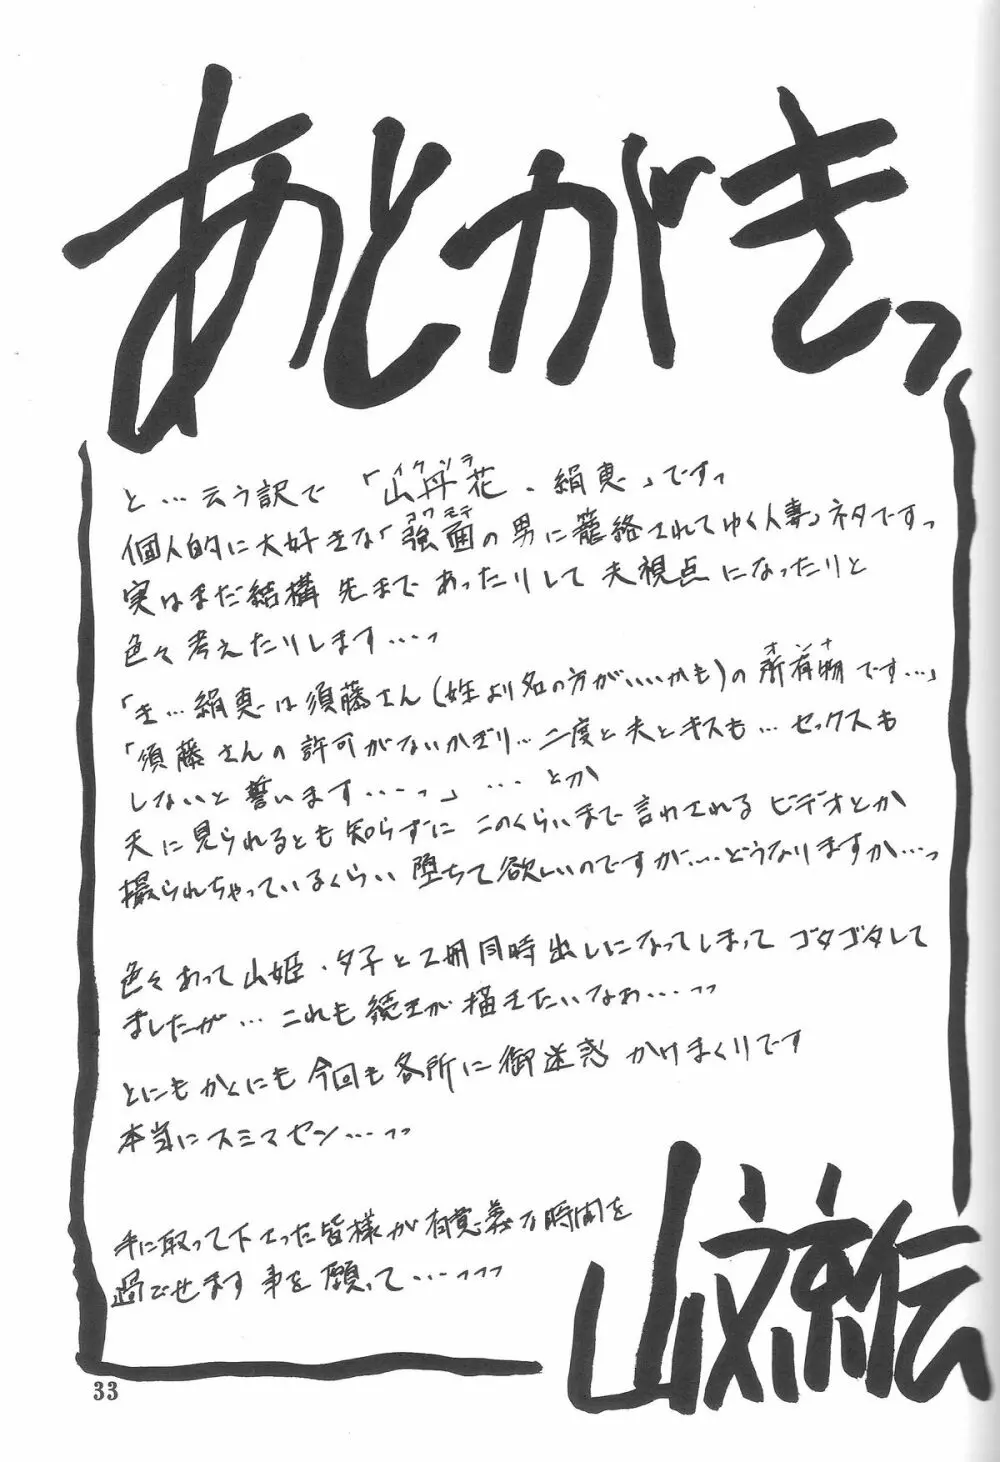 あとがきっ
と…云う訳で「山丹花、絹恵」ですっ
イケンラ
個人的に大好きな「強面の男に籠絡されてゆく人妻」ネタですっ
コワモテ
実はまだ結構先まであったりして夫視点になったりと
色々考えたりします…っ
「き…絹恵は須藤さん(姓より名の方がいいかも)の所有物です…」
オンナ
「須藤さんの許可がないかぎり…二度と夫とキスも…セックスも
しないと誓います…っ」…とか
夫に見られるとも知らずにこのくらいまで言わされるビデオとか
撮られちゃっているくらい堕ちて欲しいのですが…どうなりますか…っ
色々あって山姫・夕子と2冊同時出しになってしまってゴタゴタして
ましたが…これも続きが描きたいなぁ…っっ
とにもかくにも今回も各所に御迷惑かけまくりです
本当にスミマセン…っっ
手に取って下さった皆様が有意義な時間を
過ごせます事を願って…っっっ
山文京伝
33